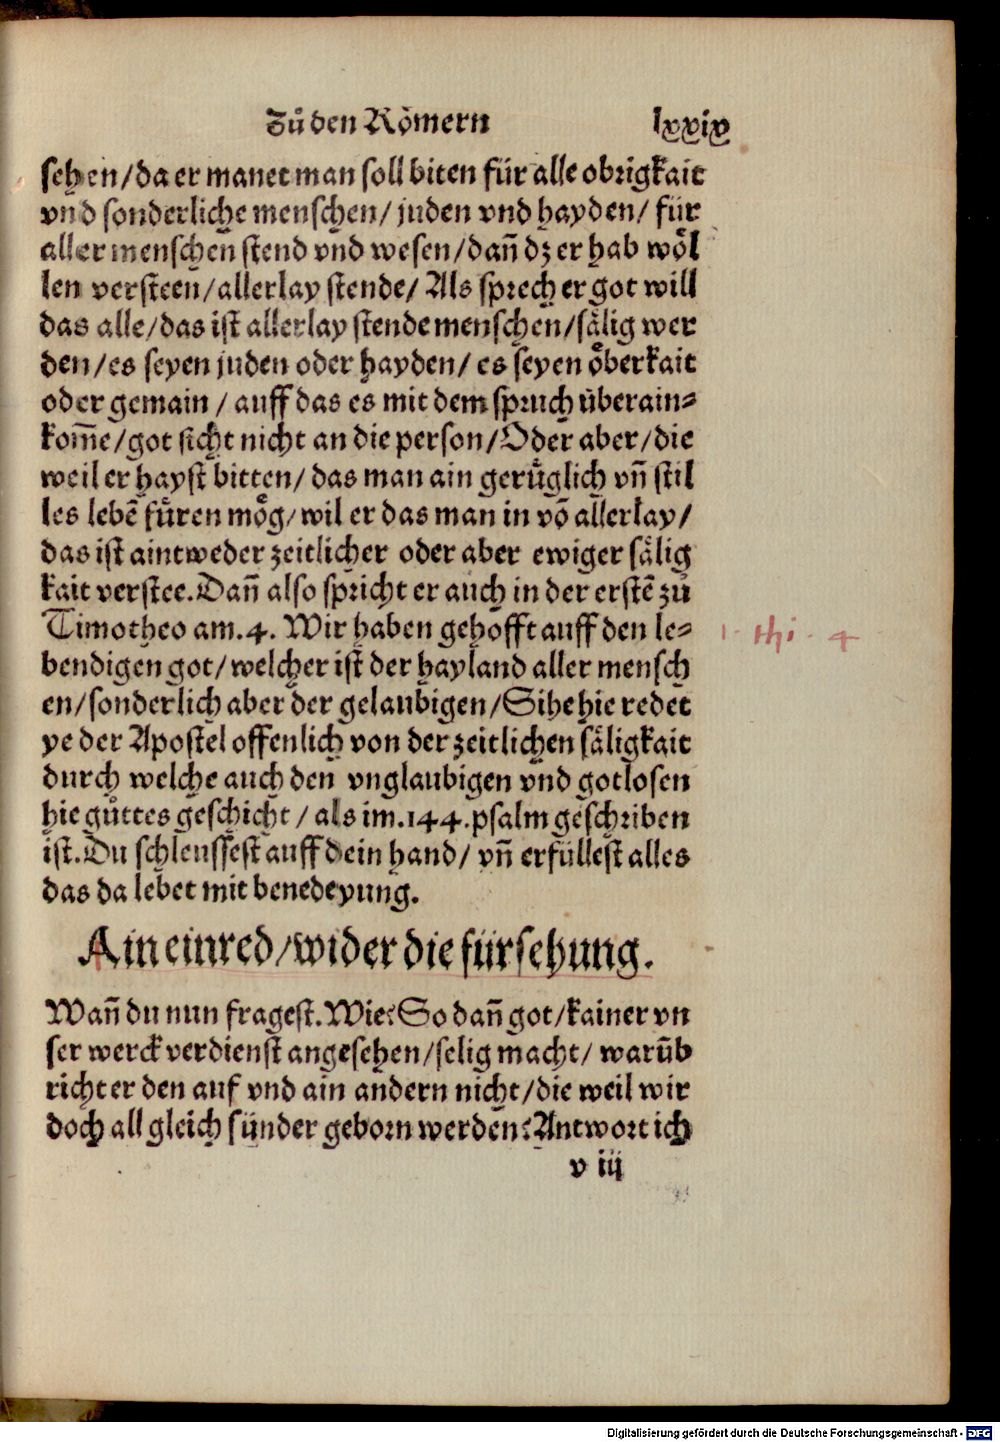 Zů den Rŏmern lxxix
sehen/da er manet man soll biten für alle obrigkait
vnd sonderliche menschen/ juden vnd hayden/ für
aller menschen stend vnd wesen/dañ dz er hab woͤl
len versteen/allerlay stende/ Als sprech er got will
das alle/das ist allerlay stende menschen/saͤlig wer
den/es seyen juden oder hayden/ es seyen oͤberkait
oder gemain / auff das es mit dem spruch überain⸗
kom̃e/got sicht nicht an die person/Oder aber/die
weil er hayst bitten/das man ain geruͤglich vñ stil
les lebẽ fuͤren moͤg/wil er das man in võ allerlay/
das ist aintweder zeitlicher oder aber ewiger saͤlig
kait verstee.Dañ also spricht er auch in der erstẽ zů
Timotheo am.4. Wir haben gehofft auff den le⸗
bendigen got/welcher ist der hayland aller mensch
en/sonderlich aber der gelaubigen/Sihe hie redet
ye der Apostel offenlich von der zeitlichen saͤligkait
durch welche auch den vnglaubigen vnd gotlosen
hie gůttes geschicht / als im.144.psalm geschriben
ist.Du schleussest auff dein hand/ vñ erfüllest alles
das da lebet mit benedeyung.
Ain einred/wider die fürsehung.
Wañ du nun fragest.Wie? So dañ got/kainer vn
ser werck verdienst angesehen/selig macht/ warũb
richt er den auf vnd ain andern nicht/die weil wir
doch all gleich sünder geborn werden? Antwort ich
v iij
1. thi. 4
Digitalisierung gefördert durch die Deutsche Forschungsgemeinschaft - DFG